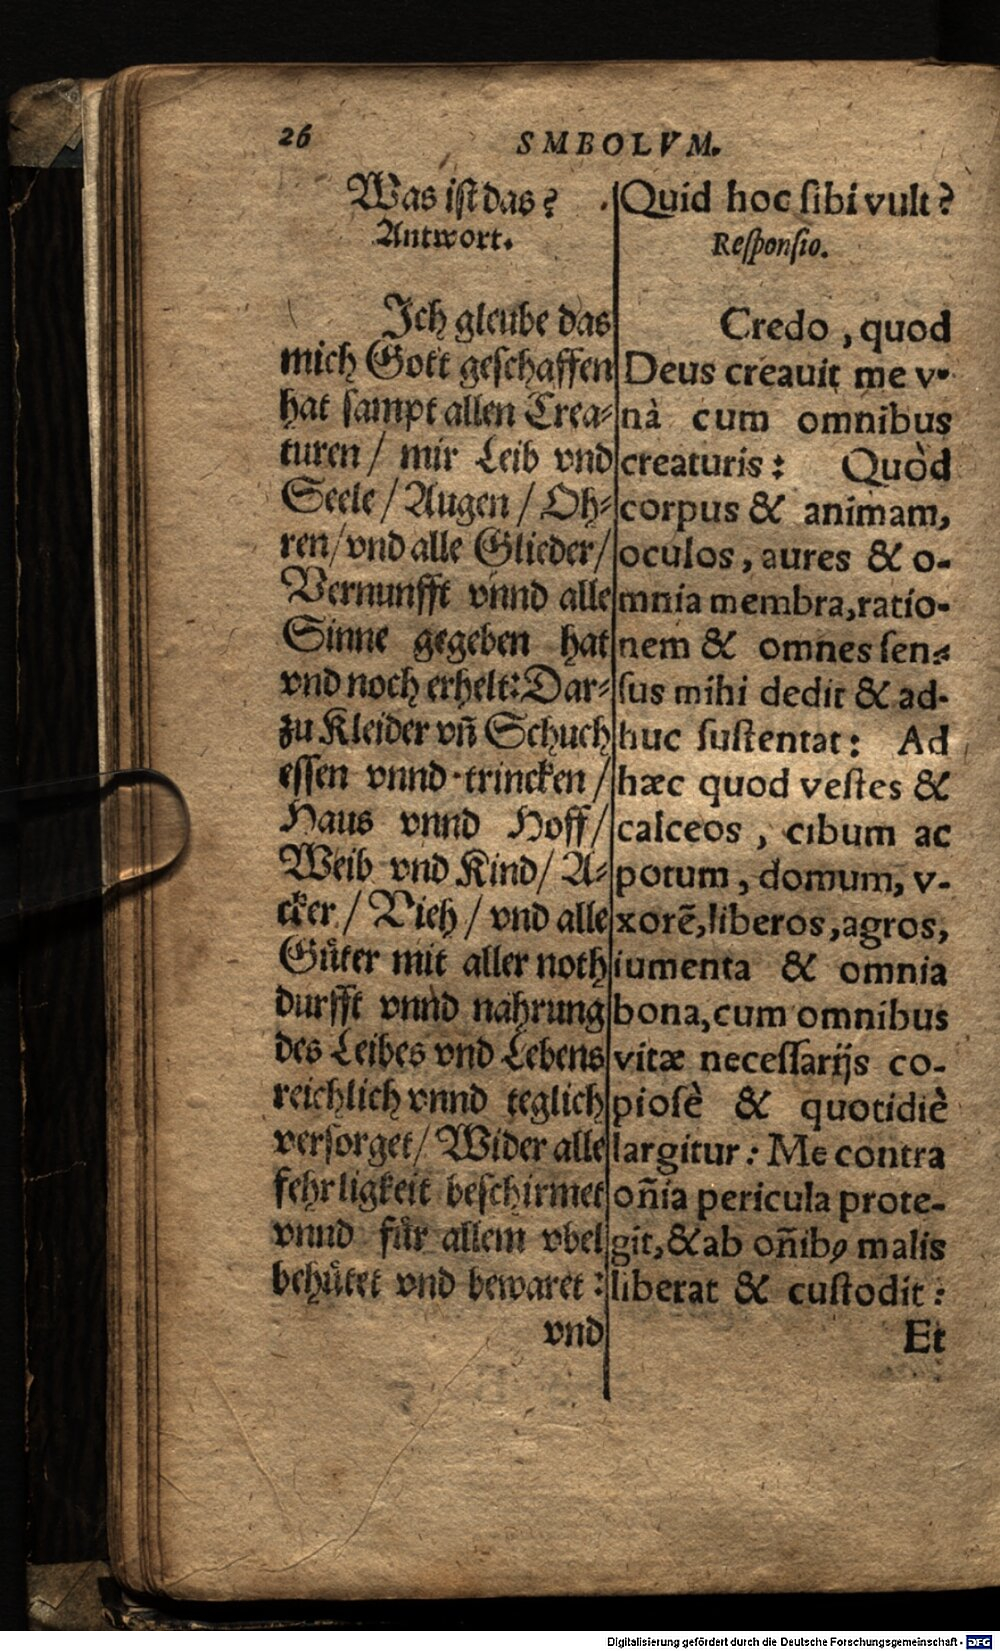 26
SMBOLVM.
Was iſt das?
Antwort.
Ich gleube das
mich Gott geſchaffen
hat ſampt allen Crea⸗
turen / mir Leib vnd
Seele / Augen / Oh⸗
ren / vnd alle Glieder /
Vernunfft vnnd alle
Sinne gegeben hat
vnd noch erhelt: Dar⸗
zu Kleider vñ Schuch
eſſen vnnd trincken /
Haus vnnd Hoff /
Weib vnd Kind / A⸗
cker / Vieh / vnd alle
Guͤter mit aller noth
durfft vnnd nahrung
des Leibes vnd Lebens
reichlich vnnd teglich
verſorget / Wider alle
fehrligkeit beſchirmet
vnnd fuͤr allem vbel
behuͤtet vnd bewaret:
vnd
Quid hoc ſibi vult?
Reſponſio.
Credo, quod
Deus creauit me v-
nà cum omnibus
creaturis: Quòd
corpus & animam,
oculos, aures & o-
mnia membra, ratio-
nem & omnes ſen-
ſus mihi dedit & ad-
huc ſuſtentat: Ad
hæc quod veſtes &
calceos, cibum ac
potum, domum, v-
xorē, liberos, agros,
iumenta & omnia
bona, cum omnibus
vitæ neceſſarijs co-
pioſè & quotidiè
largitur: Me contra
oñia pericula prote-
git, & ab oñibꝰ malis
liberat & cuſtodit:
Et
Digitalisierung gefördert durch die Deutsche Forschungsgemeinschaft - DFG